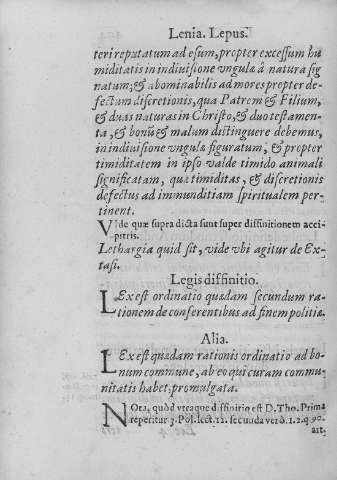 Lenia. Lepus.
teri reputatum ad esum, propter excessum hu
miditatis in indiuisione vngulæ à natura sig
natum; & abominabilis ad mores propter de-
fectum discretionis, qua Patrem & Filium,
& duas naturas in Christo, & duo testamen-
ta, & bonũ & malum distinguere debemus,
in indiuisione vngulæ figuratum, & propter
timiditatem in ipso valde timido animali
significatam, quæ timiditas, & discretionis
defectus ad immunditiam spiritualem per-
tinent.
Vide quæ supra dicta sunt super diffinitionem acci-
pitris.
Lethargia quid sit, vide vbi agitur de Ex-
tasi.
Legis diffinitio.
LEx est ordinatio quædam secundum ra-
tionem de conferentibus ad finem politiæ.
Alia.
LEx est quædam rationis ordinatio ad bo-
num commune, ab eo qui curam commu-
nitatis habet, promulgata.
NOta, quòd vtraque diffinitio est D. Tho. Prima
reperitur 3. Pol. lect. 12. secunda verò. 1. 2. q 90.
art.